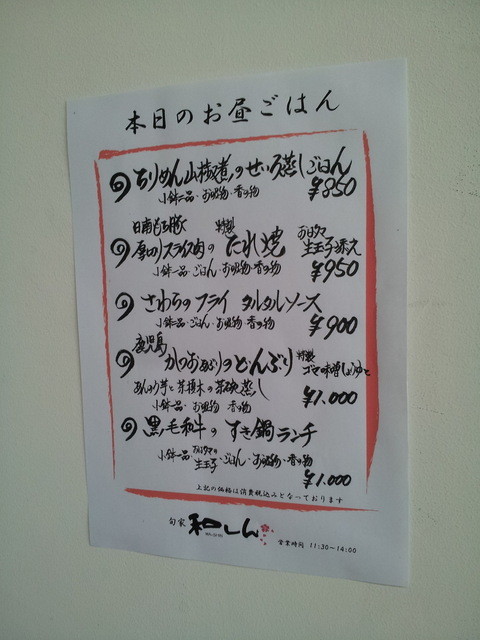 本日のお昼ごはん
ちりめん山椒煮のせいろ蒸しごはん
小鉢二品・お吸物・香の物
¥850
日南もち豚 特製
厚切りスライス肉のたれ焼 生玉子添え
小鉢一品・ごはん・お吸物・香の物
¥950
さわらのフライ タルタルソース
小鉢一品・ごはん・お吸物・香の物
¥900
鹿児島
かつおあぶりのどんぶり 特製ゴマ味噌しょうゆと
あんのう芋と 茶碗蒸し
小鉢一品・お吸物 香の物
¥1.000
黒毛和牛のすき鍋ランチ
小鉢一品・生玉子・ごはん・お吸物・香の物
¥1.000
上記の価格は消費税込みとなっております
旬家 和しん
営業時間 11:30~14:00